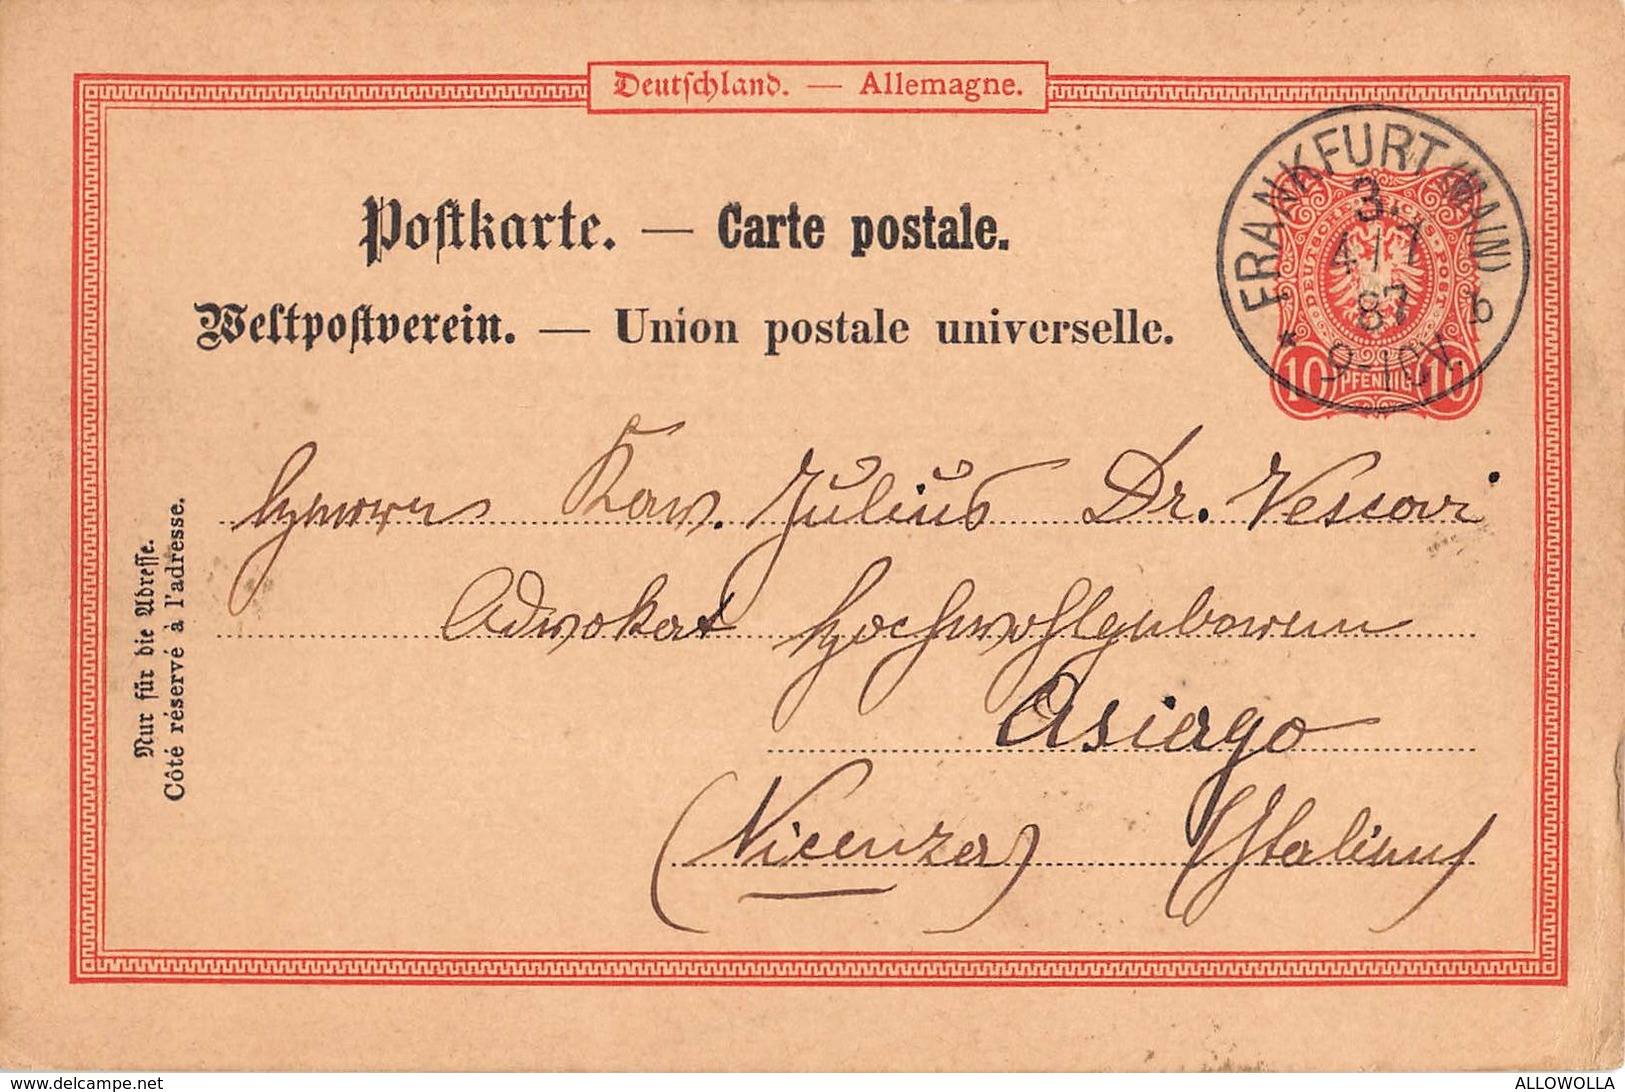 Deutschland. — Allemagne.
Postkarte. — Carte postale.
Weltpostverein. — Union postale universelle.
FRANKFURT (MAIN)
3.
4/1
87
b
*
9-10V.
DEUTSCHE REICHS-POST
10 PFENNIG 10
Herrn Kav. Julius Dr. Vescovi
Advokat Hochwohlgeboren
Asiago
(Vicenza) (Italien)
Nur für die Adresse.
Côté réservé à l'adresse.
www.delcampe.net
ALLOWOLLA